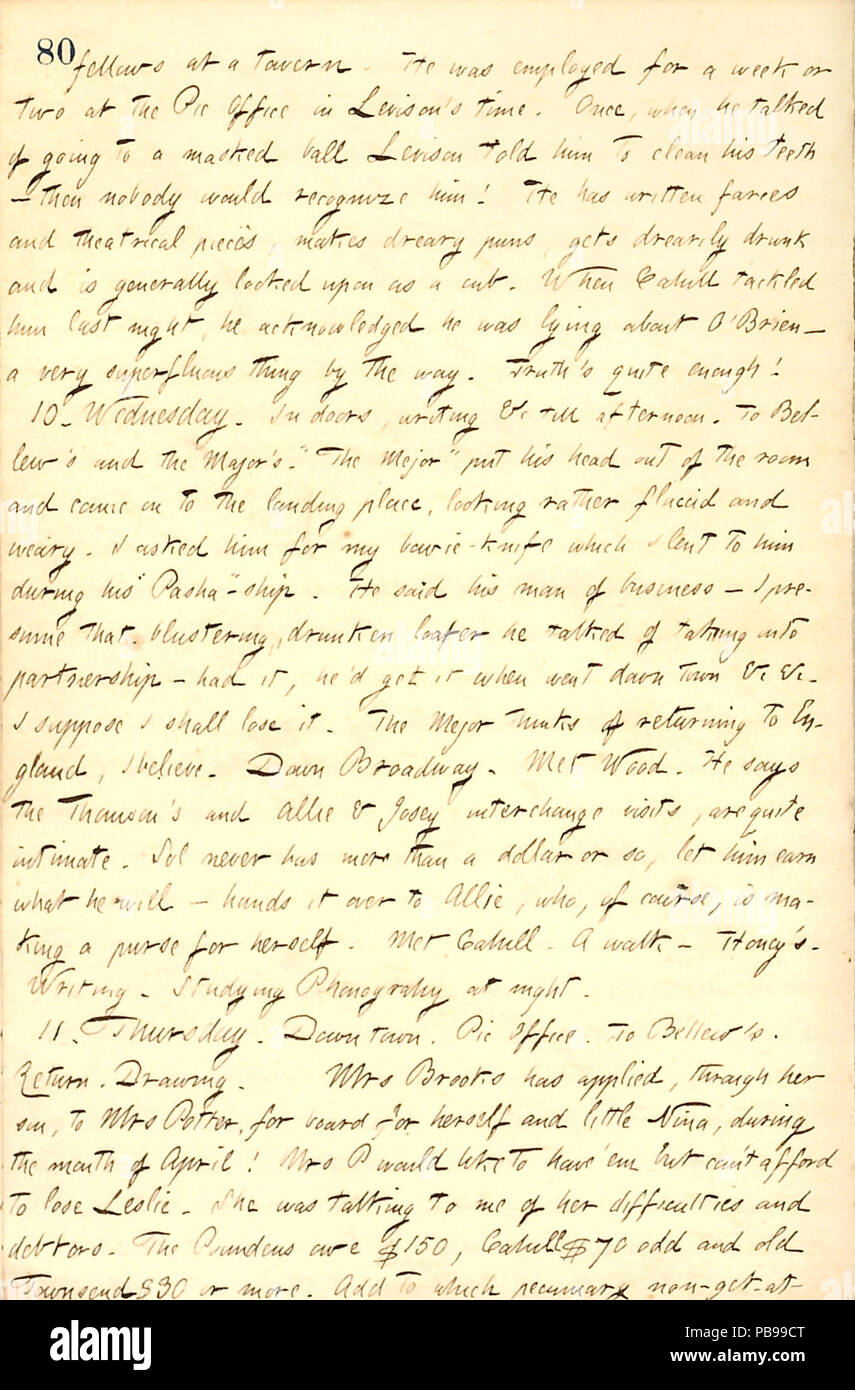 80
fellows at a tavern. He was employed for a week or
two at the Pic Office in Levison's time. Once, when he talked
of going to a masked ball Levison told him to clean his teeth
— then nobody would recognize him! He has written farces
and theatrical pieces, makes dreary puns, gets drearily drunk
and is generally looked upon as a cub. When Cahill tackled
him last night, he acknowledged he was lying about O'Brien —
a very superfluous thing by the way. Truth's quite enough!
10. Wednesday. In doors, writing &c till afternoon. To Bel-
lew's and the Major's. "The Mejor" put his head out of the room
and came on to the landing place, looking rather flaccid and
weary. I asked him for my bowie-knife which I lent to him
during his "Pasha"-ship. He said his man of business — I pre-
sume that blustering, drunken loafer he talked of taking into
partnership — had it, he'd get it when went down town &c &c.
I suppose I shall lose it. The Mejor thinks of returning to En-
gland, I believe. Down Broadway. Met Wood. He says
the Thomson's and Allie & Josey interchange visits, are quite
intimate. Sol never has more than a dollar or so, let him earn
what he will — hands it over to Allie, who, of course, is ma-
king a purse for herself. Met Cahill. A walk — Honey's.
Writing. Studying Phonography at night.
11. Thursday. Down town. Pic Office. To Bellew's.
Return. Drawing. Mrs Brooks has applied, through her
son, to Mrs Potter, for board for herself and little Nina, during
the month of April! Mrs P would like to have 'em but can't afford
to lose Leslie. She was talking to me of her difficulties and
debtors. The Poundens owe $150, Cahill $70 odd and old
Townsend $30 or more. Add to which pecuniary non-get-at-
alamy
Image ID: PB99CT
www.alamy.com